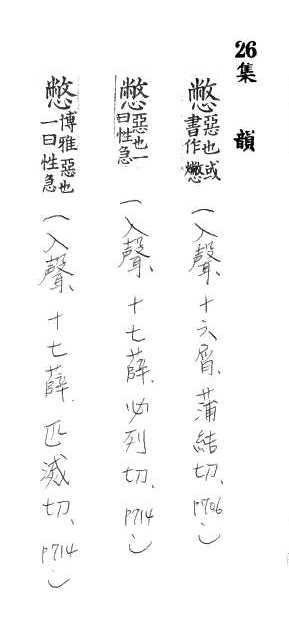 26集 韻
憋惡也或書作𢠳(入聲、十六屑、蒲結切、P706)
憋惡也一曰性急(入聲、十七薛、必列切、P714)
憋博雅惡也一曰性急(入聲、十七薛、匹滅切、P714)